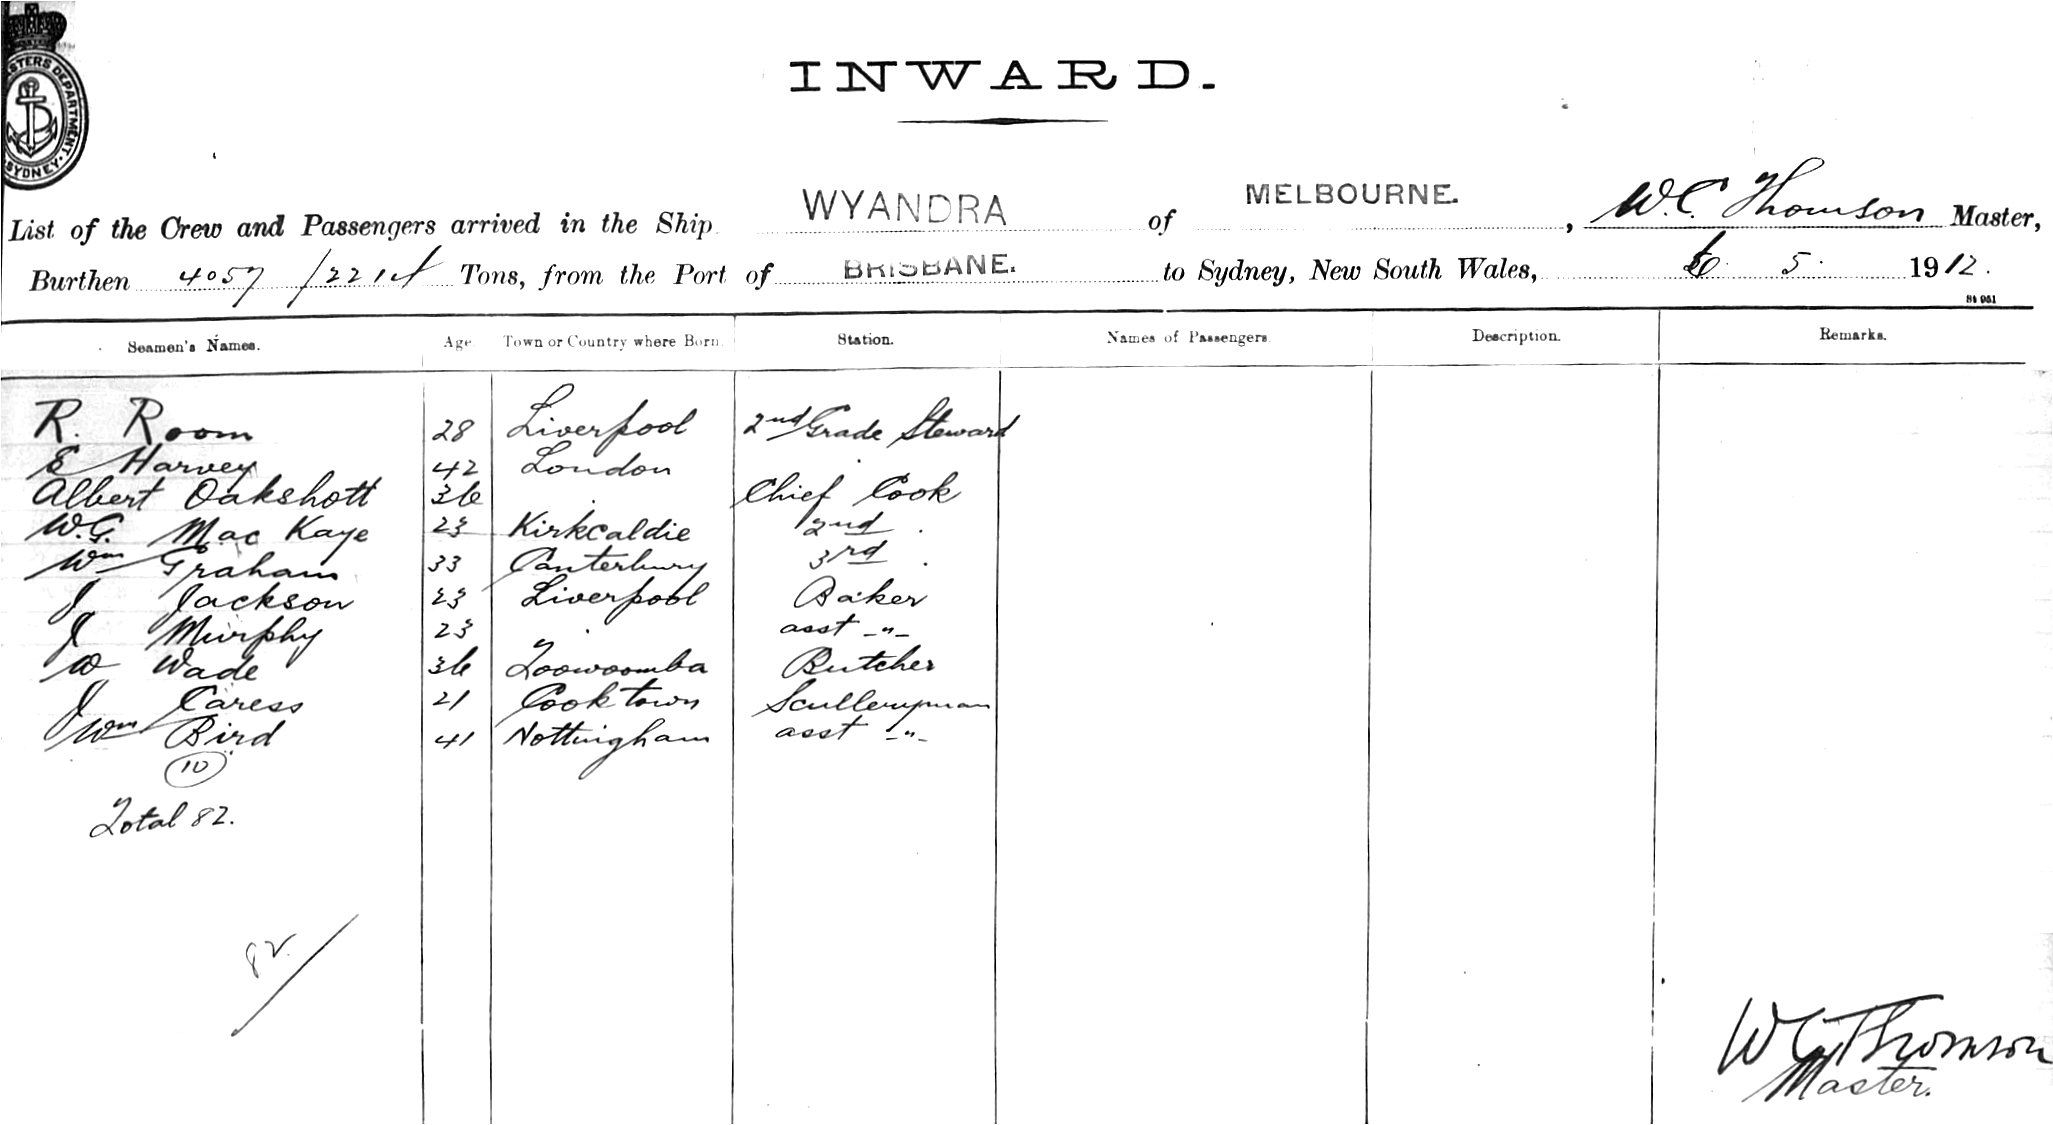 STERS DEPARTMENT. SYDNEY.
INWARD.
List of the Crew and Passengers arrived in the Ship WYANDRA of MELBOURNE., W.C. Thomson Master,
Burthen 4057/2214 Tons, from the Port of BRISBANE. to Sydney, New South Wales, 5. 1912.
St 951
Seamen's Names. Age Town or Country where Born. Station. Names of Passengers Description. Remarks.
R. Room 28 Liverpool 2nd Grade Steward
E Harvey 42 London "
Albert Oakshott 36 " Chief Cook
W.G. Mac Kaye 23 Kirkcaldie 2nd "
Wm Graham 33 Canterbury 3rd "
J Jackson 23 Liverpool Baker
J Murphy 23 " asst -"-
W Wade 36 Toowoomba Butcher
J Caress 21 Cooktown Sculleryman
Wm Bird 41 Nottingham asst -"-
10
Total 82.
82
W C Thomson
Master.